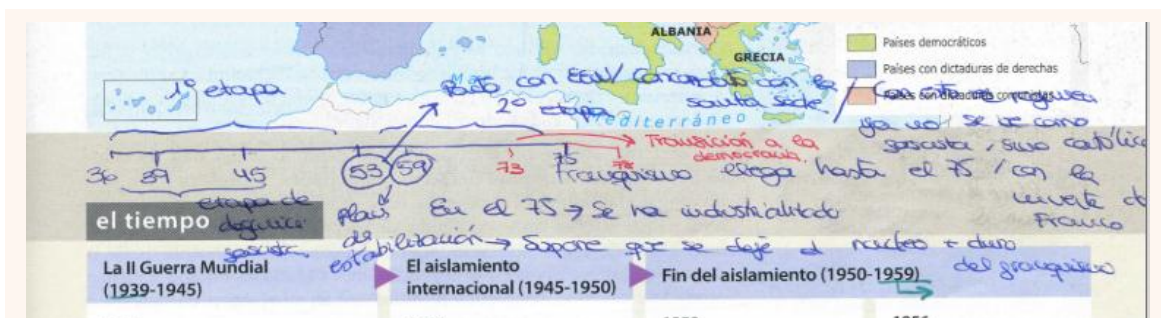 ALBANIA
GRECIA
Países democráticos
Países con dictaduras de derechas
Países con dictaduras comunistas
1º etapa
Pacto con EEUU / Concordato con la santa sede / Con esto el régimen
ya no se ve como
fascista, sino católico
2º etapa
Mediterráneo
Transición a la
democracia.
36 39 45 53 59 73 75 78
Franquismo llega hasta el 75 / con la
muerte de
Franco
etapa de
fascista
el tiempo
Plan
de
estabilización → Supone que se deje el núcleo + duro
del franquismo
En el 75 → Se ha industrializado
La II Guerra Mundial
(1939-1945)
El aislamiento
internacional (1945-1950)
Fin del aislamiento (1950-1959)